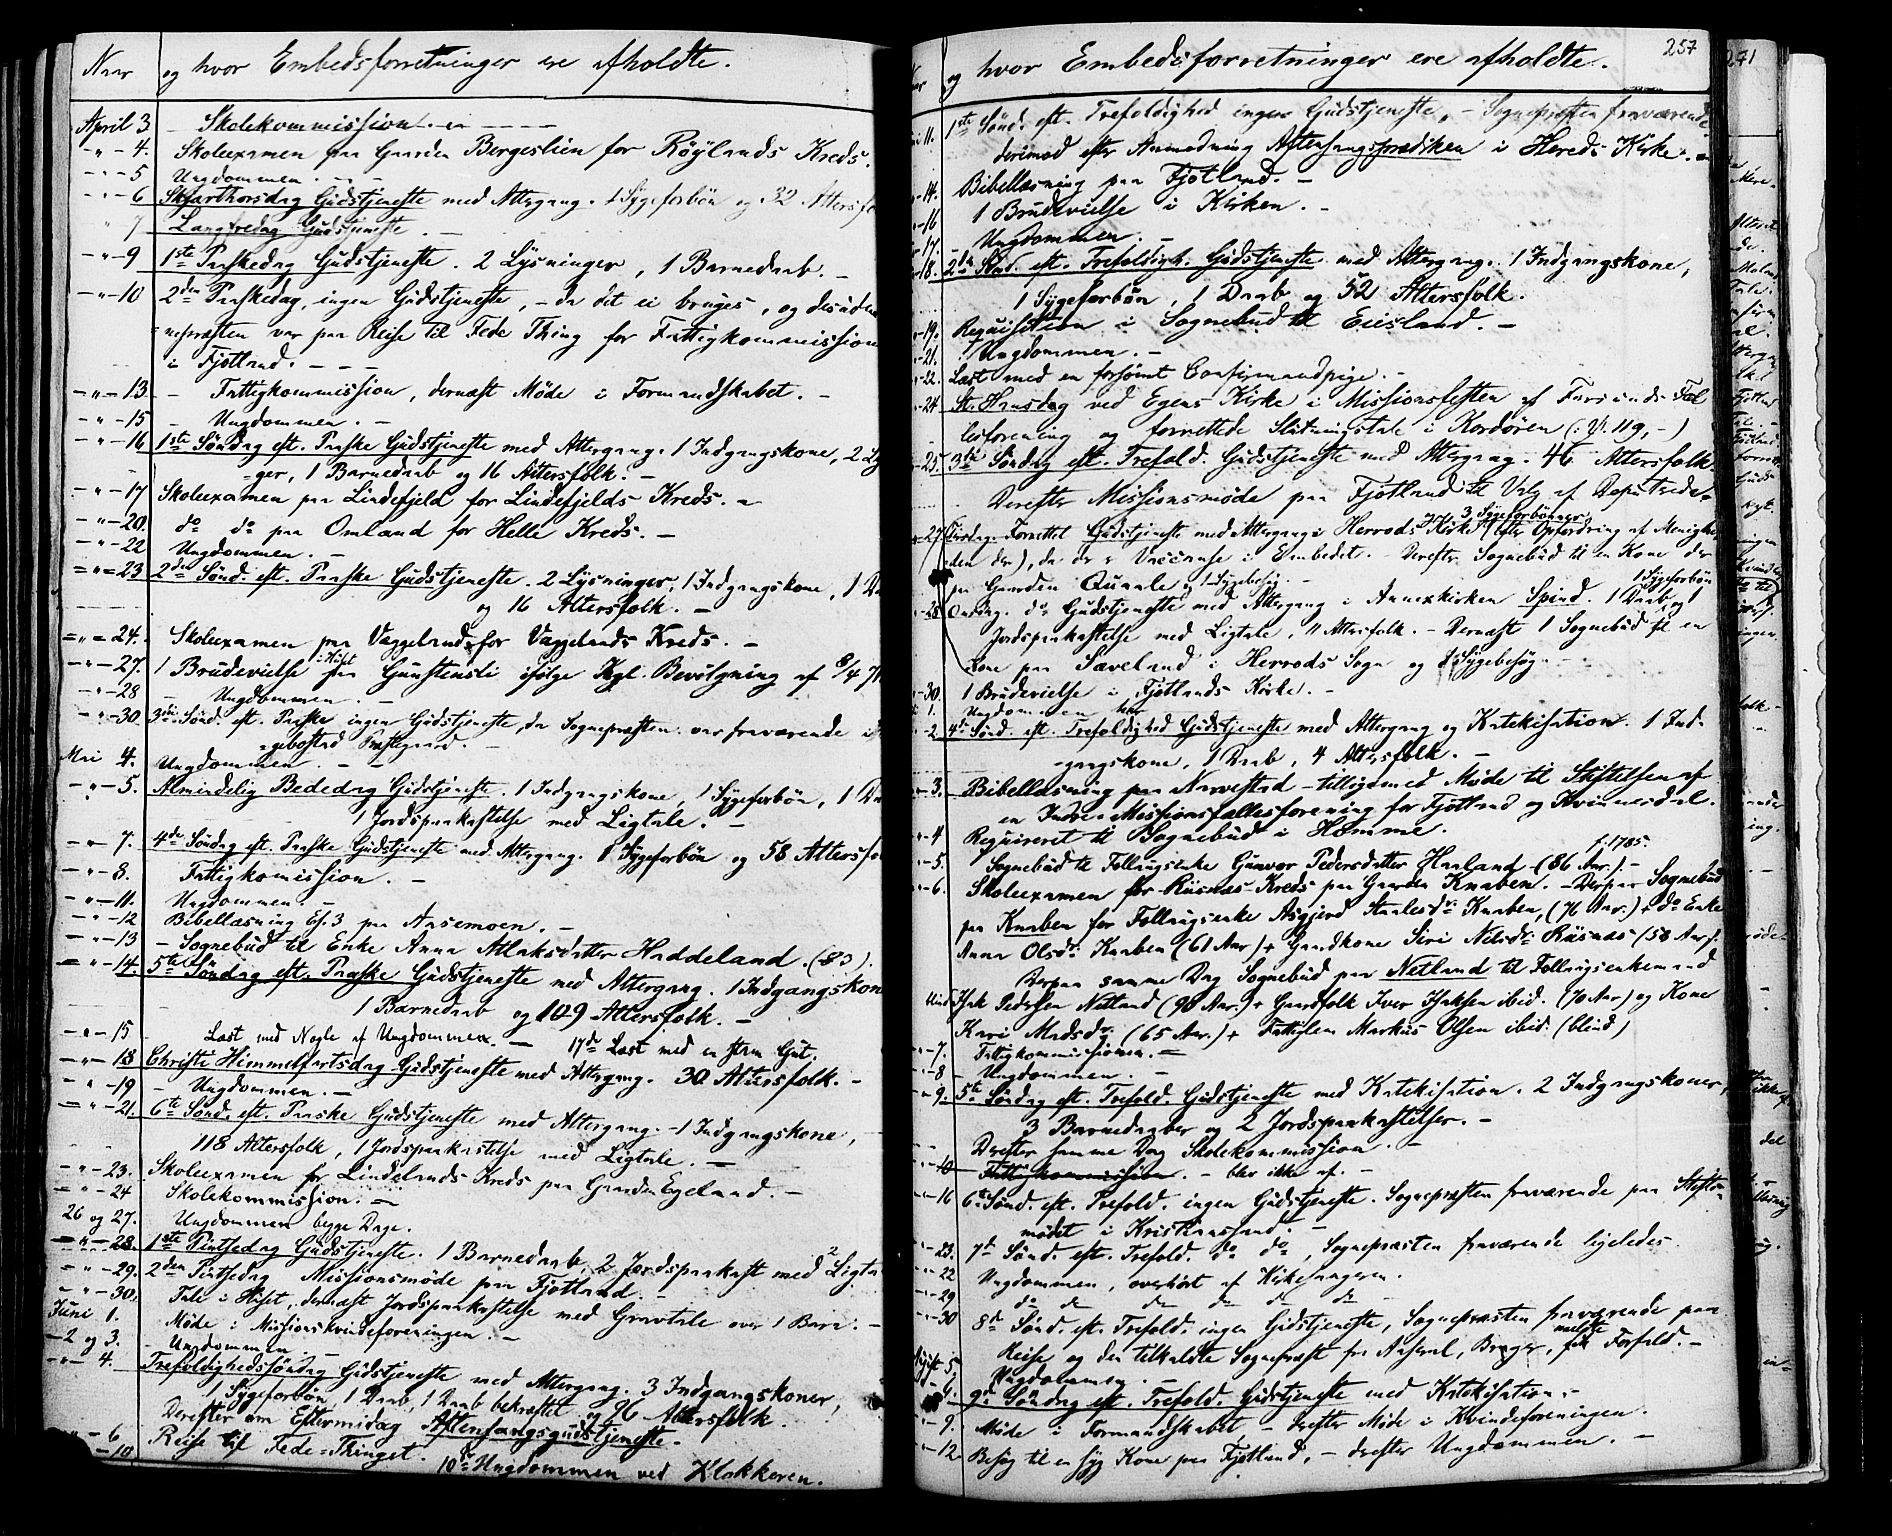 Naar og hvor Embedsforretninger ere afholdte.
April 3 – Skolekommission.
-"- 4. Skoleexamen paa Gaarden Bergeslien for Röylands Kreds.
-"- 5 Ungdommen.
-"- 6 Skjærthorsdag Gudstjeneste med Altergang. 1 Sygeforbön og 32 Altersf
" 7 Langfredag Gudstjeneste. –
-"- 9 1ste Paaskedag Gudstjeneste. 2 Lysninger, 1 Barnedaab. –
-"- 10 2den Paaskedag, ingen Gudstjeneste, – da det ei bruges, og desuden
nepræsten var paa Reise til Fede Thing for Fattigkommission
i Fjotland. – – –
-"- 13 – Fattigkommission, dernæst Möde i Formandskabet. –
-"- 15 – Ungdommen. –
-"- 16 1ste Söndag eft. Paaske Gudstjeneste med Altergang. 1 Indgangskone, 2 Ly
=ger, 1 Barnedaab og 16 Altersfolk. –
-"- 17 Skoleexamen paa Lindefjeld for Lindefjelds Kreds. –
-"- 20. do do paa Omland for Helle Kreds. –
-"- 22 Ungdommen. –
="= 23 2den Sönd. eft. Paaske Gudstjeneste. 2 Lysninger, 1 Indgangskone, 1 Da
og 16 Altersfolk. –
="= 24. Skoleexamen paa Vaggeland for Vaggelands Kreds. –
-"- 27. 1 Brudevielse i Huset paa Gunstensli ifölge Kgl. Bevilgning af 8/4 71
-"- 28 – Ungdommen. –
-"- 30. 3die Sönd. eft. Paaske ingen Gudstjeneste, da Sognepræsten var fraværende i
=gebostad Præstegaard. –
Mai 4. Ungdommen. – –
-"- 5. Almindelig Bededag Gudstjeneste. 1 Indgangskone, 1 Sygeforbön, 1 Da
1 Jordspaakastelse med Ligtale. –
-"- 7. 4de Söndag eft. Paaske Gudstjeneste med Altergang. 1 Sygeforbön og 58 Altersfo
-"- 8. Fattigkomission. –
-"- 11. Ungdommen. –
-"- 12 Bibellæsning Ef. 3 paa Aasemoen. –
-"- 13 – Sognebud til Enke Anna Atlaksdatter Haddeland. (83).
="- 14. 5te Söndag eft. Paaske Gudstjeneste med Altergang. 1 Indgangskon
1 Barnedaab og 109 Altersfolk. –
-"- 15 Læst med Nogle af Ungdommen. – 17de Læst med en Gut.
-"- 18 Christi Himmelfartsdag Gudstjeneste med Altergang. 30 Altersfolk. –
-"- 19 – Ungdommen. –
-"- 21. 6te Sönd. eft. Paaske Gudstjeneste med Altergang. – 1 Indgangskone,
118 Altersfolk, 1 Jordspaakastelse med Ligtale. –
-"- 23. Skoleexamen for Lindelands Kreds paa Gaarden Egeland. –
-"- 24 Skolekommission. –
26 og 27. Ungdommen begge Dage.
-"- 28. 1ste Pintsedag Gudstjeneste. 1 Barnedaab, 2 Jordspaakast med 2 Ligta
-"- 29. 2den Pintsedag Missionsmöde paa Fjotland. –
-"- 30. Tale i Huset, dernæst Jordspaakastelse med Gravtale over 1 Barn. –
Juni 1. Möde i Missionskvindeforeningen. –
– 2 og 3. – Ungdommen –
-"- 4. Trefoldighedssöndag Gudstjeneste med Altergang. 3 Indgangskoner,
1 Sygeforbön, 1 Daab, 1 Daab bekræftet og 96 Altersfolk.
Derefter om Eftermidag Aftensangsgudstjeneste.
-"- 6 Reise til Fede=Thinget.
10 10de Ungdommen ved Klokkeren.
257
og hvor Embedsforretninger ere afholdte.
11. 1ste Sönd. eft. Trefoldighed ingen Gudstjeneste, – Sognepræsten fraværende
derimod efter Anmodning Aftensangsprædiken i Hereds Kirke.
14. Bibellæsning paa Fjotland. –
16 1 Brudevielse i Kirken. –
17. Ungdommen. –
18. 2den Sönd. eft. Trefoldigh. Gudstjeneste med Altergang. 1 Indgangskone,
1 Sygeforbön, 1 Daab og 52 Altersfolk.
19. Requisition i Sognebud til Eiesland. –
21. Ungdommen. –
22. Læst med en forsömt Confirmandpige. –
24 St. Hansdag ved Egens Kirke i Missionsfesten af Farsunds Fæl
lesforening og forrettede Slutningstale i Kordören (: V. 119, –)
25. 3die Söndag eft. Trefold. Gudstjeneste med Altergang. 46 Altersfolk.
Derefter Missionsmöde paa Fjotland til Valg af Deputerede.
27. Tirsdag. Forrettet Gudstjeneste med Altergang i Herrods Kirke 3 Sygeforbönner (efter Opfordring af Menighe
den der), da der er Vaccanse i Embedet. – Derefter Sognebud til en Kone der
paa Gaarden Qvaale og 1 Sygebesög. –
28 Onsdag. do Gudstjeneste med Altergang i Annexkirken Spind. 1 Daab, 1 Sygeforbön og 1
Jordspaakastelse med Ligtale, 11 Altersfolk. – Dernæst 1 Sognebud til en
Kone paa Sæveland i Herrods Sogn og 1 Sygebesög. –
30. 1 Brudevielse i Fjotlands Kirke. –
1. Ungdommen
2. 4de Sönd. eft. Trefoldighed Gudstjeneste med Altergang og Katekisation. 1 Ind=
gangskone, 1 Daab, 4 Altersfolk. –
3. Bibellæsning paa Narvestad – tilligemed Möde til Stiftelsen af
en Indre=Missionsfællesforening for Fjotland og Kvinnesdal.
4 Requireret til Sognebud i Homme.
5. Sognebud til Follaugsenke Gunvor Pedersdatter Haaland – (86 Aar.) – f. 1785.
6. Skoleexamen for Risnæs Kreds paa Gaarden Knaben. – Derpaa Sognebud
paa Knaben for Follaugsenke Asgjerd Staalesdr Knaben, (76 Aar.) + do Enke
Anna Olsdr Knaben (61 Aar) + Gaardkone Siri Nilsdr Risnæs (58 Aar).
Derpaa samme Dag Sognebud paa Netland til Follaugsenkemand
Isak Pedersen Netland (90 Aar.) + Gaardfolk Iver Isaksen ibid. (70 Aar) og Kone
Kari Madsdr. (65 Aar.) + Fattiglem Markus Olsen ibid. (blind)
7. Fattigkommissionen. –
8 – Ungdommen. –
9. 5te Söndag eft. Trefold. Gudstjeneste med Katekisation. 2 Indgangskoner,
3 Barnedaaber og 2 Jordspaakastelser. –
Derefter samme Dag Skolekommission. –
10 Fattigkommission. – blev ikke af. –
16 6te Sönd. eft. Trefold. ingen Gudstjeneste. Sognepræsten fraværende paa Stifts
mödet i Kristianssand. –
23. 7de Sönd. eft. Trefold. do do, Sognepræsten fraværende ligeledes.
22 Ungdommen, overhört af Kirkesangeren.
29 do do do do do do
30 8de Sönd. eft. Trefold. ingen Gudstjeneste, Sognepræsten fraværende paa
Reise og den tilkaldte Sognepræst fra Aaseral, Brager, meldte Forfald. –
5 Ungdommen. –
6. 9de Söndag eft. Trefold. Gudstjeneste med Katekisation. –
9. Möde i Formandskabet – derefter Möde i Kvindeforeningen.
12 Besög til en syg Kone paa Fjotland, – derefter Ungdommen. –
271